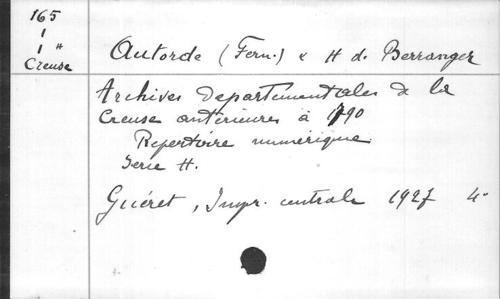 165
1
1 H
Creuse
Autorde (Fern.) & H d. Berranger
Archives départementales de la
Creuse antérieures à 1790
Repertoire numérique
Serie H.
Guéret, Impr. centrale 1927 4°